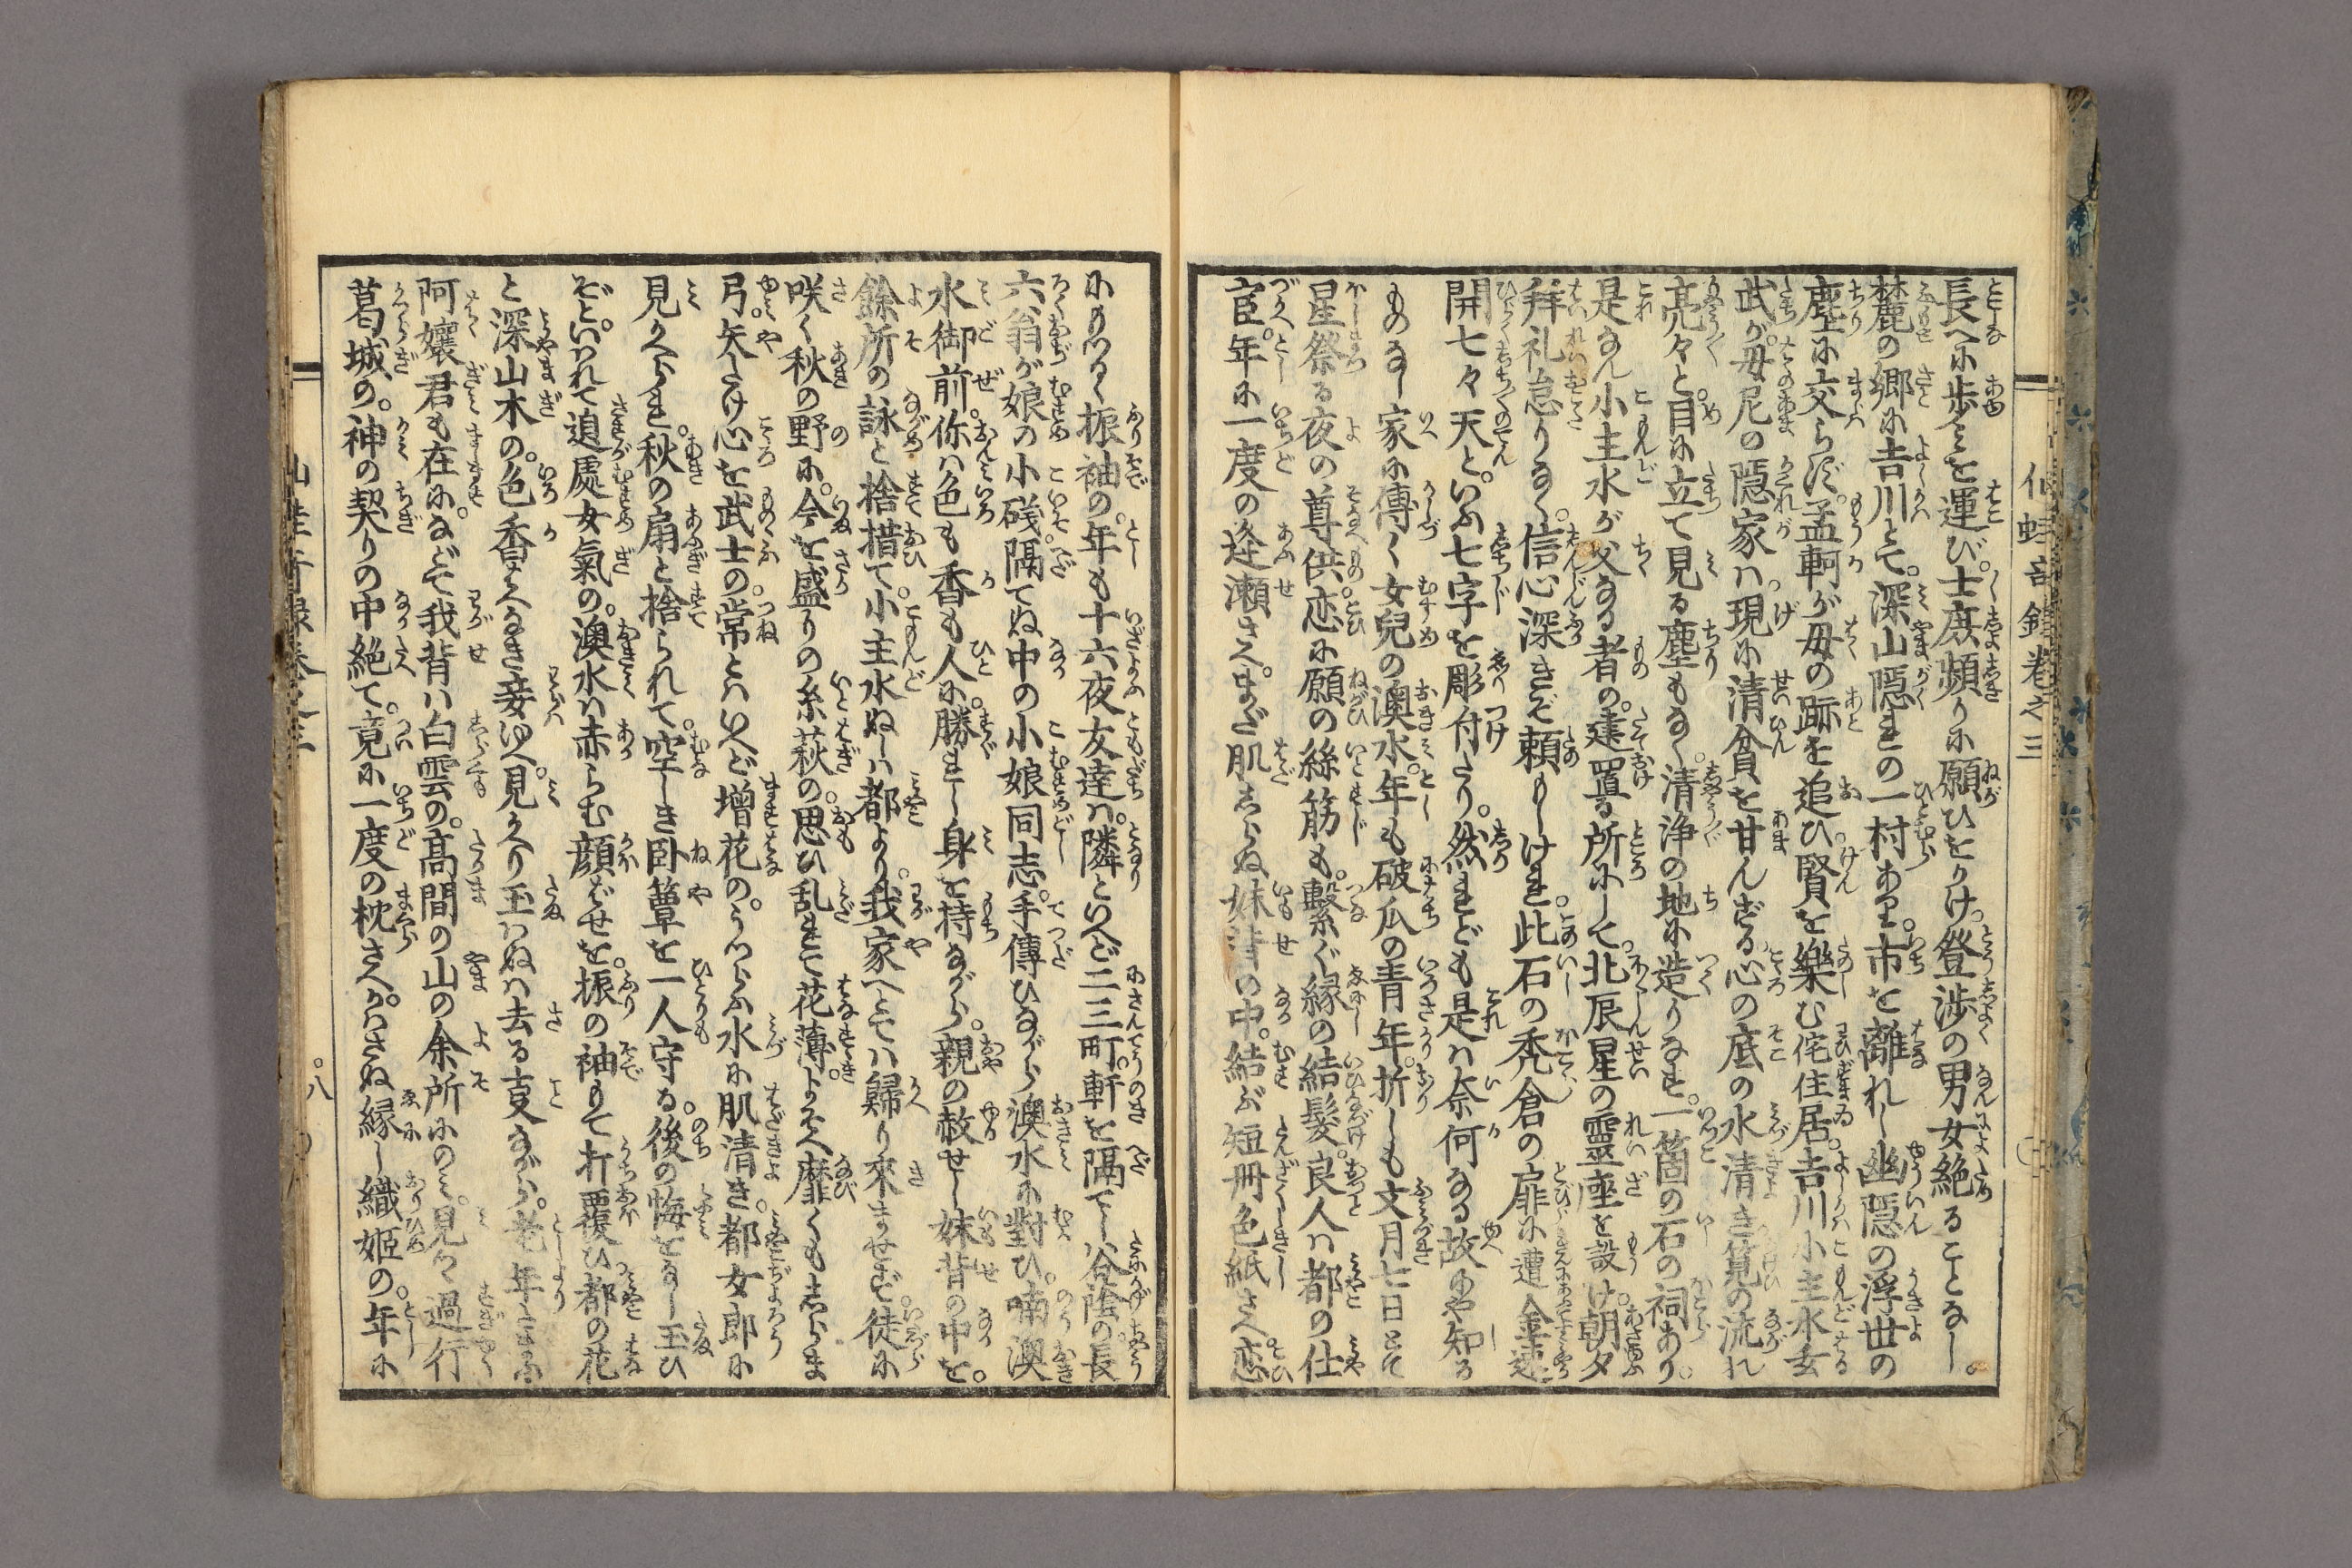 長へに歩みを運び。士庶頻りに願ひをかけ。登渉の男女絶ることなし。
麓の郷に吉川とて。深山隠れの一村あり。市を離れし幽隠の浮世の
塵に交らず。孟軻が母の跡を追ひ。賢を樂む侘住居。吉川小主水女
武が母尼の隠家は。現に清貧を甘んずる心の底の水清き筧の流れ
亮々と。目に立て見る塵もなく。清浄の地に造りなす。一箇の石の祠あり。
是なん小主水が父なる者の。建置る所にして。北辰星の靈座を設け。朝夕
拜礼怠りなく。信心深きぞ頼もしけれ。此石の禿倉の扉に遭金逹
開七々天と。いふ七字を彫付たり。然れども是は奈何なる故にや知る
ものなし。家に傳く女兒の澳水。年も破瓜の青年。折しも文月七日とて
星祭る夜の。尊供。恋に願の絲筋も。繫ぐ縁の結髮。良人は都の仕
宦。年に一度の逢瀬さへ。まだ肌しらぬ妹背の中。結ぶ短冊色紙さへ。恋
にものく振袖の。年も十六夜女達は。隣といへど二三町。軒を隔てし谷蔭の。長
六翁が娘の小礒。隔てぬ中の小娘同志。手傳ひながら澳水に對ひ。喃澳
水御前。你は色も香も人に。勝れし身を持ながら。親の赦せし妹背の中を。
餘所の詠と捨措て。小主水ぬしは都より。我家へとては歸り來ませず。徒に
咲く秋の野に。今を盛りの糸萩の。思ひ乱れて花薄。よそへ靡くもしらま
弓。矢たけ心を武士の。常とはいへど増花の。うつらふ水に肌清き。都女郎に
見かへられ。秋の扇と捨られて。空しき卧簟を一人守る。後の悔をなし玉ひ
そといはれて追處女氣の。澳水は赤らむ顔ばせを。振の袖もて打覆ひ。都の花
と深山木の。色香なき妾ゆへ。見かへり玉はぬは去る叓ながら。老年玉ふ
阿孃君も在に。などて我背は白雲の。高間の山の余所にのみ。見て過行
葛城の。神の契りの中絶て。竟に一度の枕さへ。かはさぬ縁し織姫の。年に
八